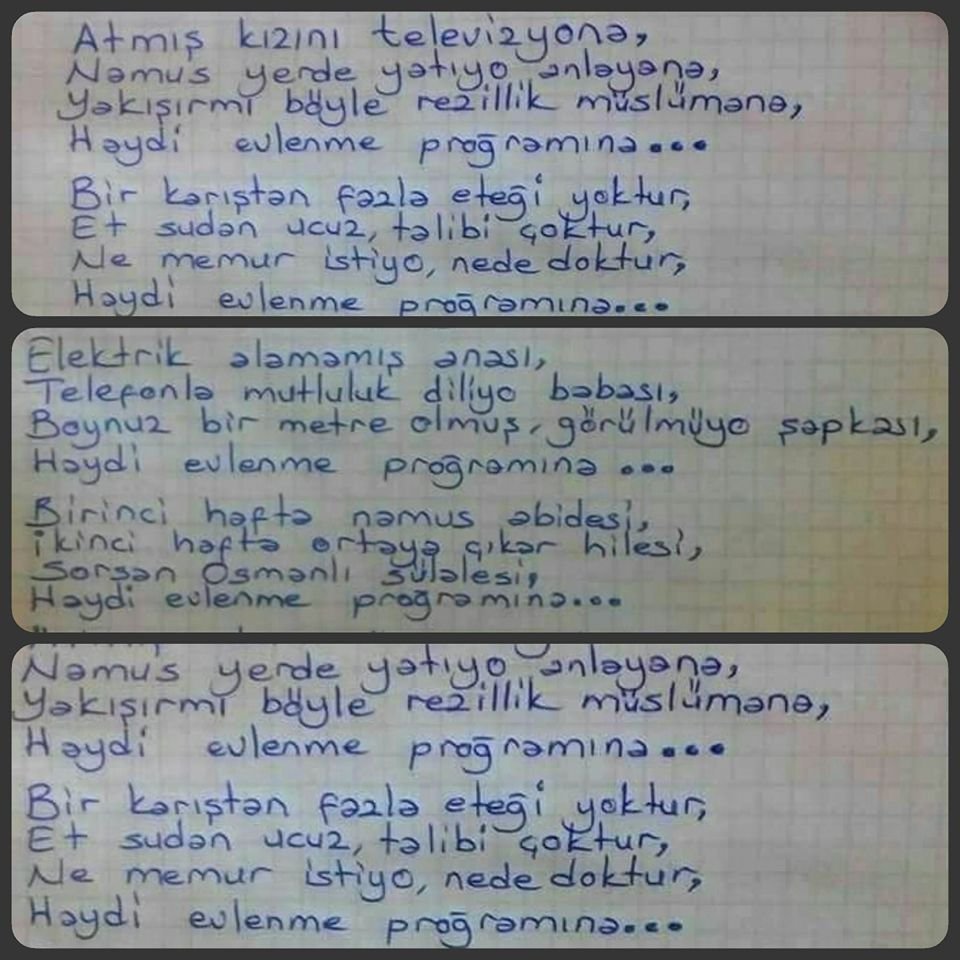 Atmış kızını televizyona,
Namus yerde yatıyo anlayana,
Yakışırmı böyle rezillik müslümana,
Haydi evlenme proğramına...
Bir karıştan fazla eteği yoktur,
Et sudan ucuz, talibi çoktur,
Ne memur istiyo, nede doktur,
Haydi evlenme proğramına...
Elektrik alamamış anası,
Telefonla mutluluk diliyo babası,
Boynuz bir metre olmuş, görülmüyo şapkası,
Haydi evlenme proğramına...
Birinci hafta namus abidesi,
İkinci hafta ortaya çıkar hilesi,
Sorsan Osmanlı sülalesi,
Haydi evlenme proğramına...
Namus yerde yatıyo anlayana,
Yakışırmı böyle rezillik müslümana,
Haydi evlenme proğramına...
Bir karıştan fazla eteği yoktur,
Et sudan ucuz, talibi çoktur,
Ne memur istiyo, nede doktur,
Haydi evlenme proğramına...